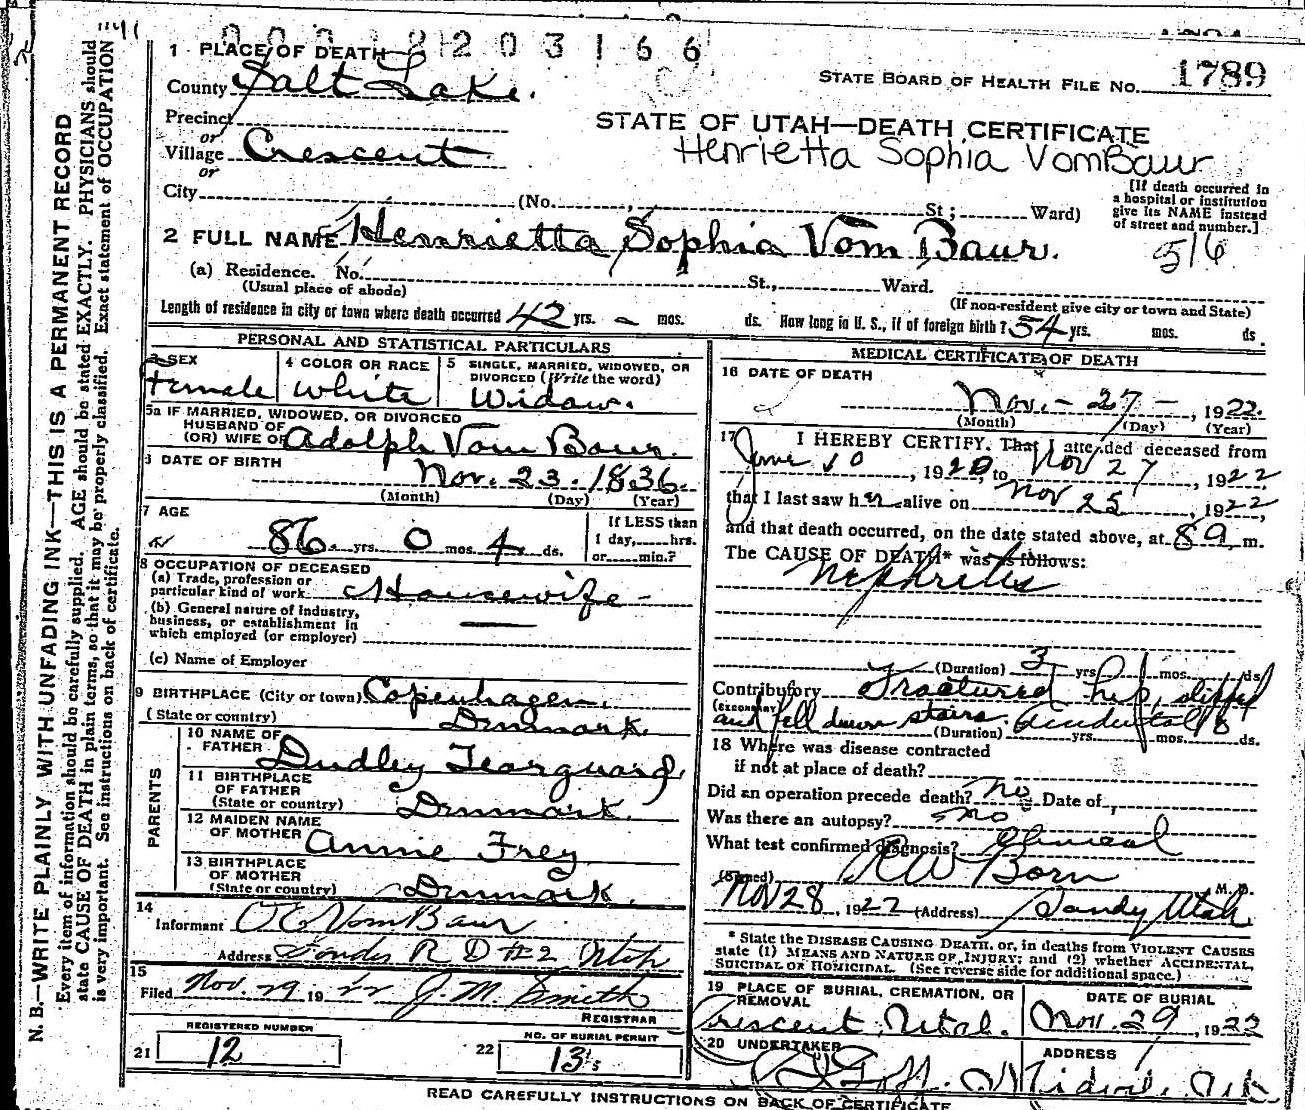 0 0 0 1 2 0 3 1 6 6
1 PLACE OF DEATH
STATE BOARD OF HEALTH FILE No. 1789
County Salt Lake.
Precinct
or
Village Crescent
or
STATE OF UTAH—DEATH CERTIFICATE
Henrietta Sophia VomBaur
City (No. , St ; Ward)
[If death occurred in
a hospital or institution
give its NAME instead
of street and number.]
516
2 FULL NAME Henrietta Sophia Vom Baur.
(a) Residence. No. St., Ward.
(Usual place of abode)
(If non-resident give city or town and State)
Length of residence in city or town where death occurred 42 yrs. – mos. ds. How long in U. S., if of foreign birth? 54 yrs. mos. ds.
PERSONAL AND STATISTICAL PARTICULARS
3 SEX
Female
4 COLOR OR RACE
White
5 SINGLE, MARRIED, WIDOWED, OR
DIVORCED (Write the word)
Widow.
5a IF MARRIED, WIDOWED, OR DIVORCED
HUSBAND OF
(OR) WIFE OF Adolph Vom Baur.
6 DATE OF BIRTH
Nov. 23. 1836.
(Month) (Day) (Year)
7 AGE
86 yrs. 0 mos. 4 ds.
If LESS than
1 day, hrs.
or min.?
8 OCCUPATION OF DECEASED
(a) Trade, profession or
particular kind of work Housewife –
(b) General nature of Industry,
business, or establishment in
which employed (or employer) —
(c) Name of Employer
9 BIRTHPLACE (City or town) Copenhagen,
(State or country) Denmark.
PARENTS
10 NAME OF
FATHER Dudley Tearguard,
11 BIRTHPLACE
OF FATHER
(State or country) Denmark.
12 MAIDEN NAME
OF MOTHER Annie Frey
13 BIRTHPLACE
OF MOTHER
(State or country) Denmark.
14
Informant O E VomBaur
Address Sandy R D #2 Utah
15
Filed Nov. 29 19 22 J. M. Smith
REGISTRAR
REGISTERED NUMBER
21 12
NO. OF BURIAL PERMIT
22 13
MEDICAL CERTIFICATE OF DEATH
16 DATE OF DEATH
Nov. – 27 – , 1922.
(Month) (Day) (Year)
17 I HEREBY CERTIFY. That I attended deceased from
June 10, 1920, to Nov 27, 1922
that I last saw her alive on Nov 25, 1922,
and that death occurred, on the date stated above, at 8 a. m.
The CAUSE OF DEATH* was as follows:
Nephritis
(Duration) 3 yrs. mos. ds
Contributory Fractured hip, slipped
(SECONDARY) and fell down stairs. Accidental
(Duration) yrs. mos. 8 ds.
18 Where was disease contracted
if not at place of death?
Did an operation precede death? No Date of
Was there an autopsy? No
What test confirmed diagnosis? Clinical
(Signed) R W Born M. D.
Nov 28, 1922 (Address) Sandy Utah
* State the DISEASE CAUSING DEATH, or, in deaths from VIOLENT CAUSES
state (1) MEANS AND NATURE OF INJURY; and (2) whether ACCIDENTAL,
SUICIDAL OR HOMICIDAL. (See reverse side for additional space.)
19 PLACE OF BURIAL, CREMATION, OR
REMOVAL
Crescent, Utah.
DATE OF BURIAL
Nov. 29, 1922
20 UNDERTAKER
Goff.
ADDRESS
Midvale, Utah
READ CAREFULLY INSTRUCTIONS ON BACK OF CERTIFICATE
N. B.—WRITE PLAINLY WITH UNFADING INK—THIS IS A PERMANENT RECORD
Every item of information should be carefully supplied. AGE should be stated EXACTLY. PHYSICIANS should
state CAUSE OF DEATH in plain terms, so that it may be properly classified. Exact statement of OCCUPATION
is very important. See instructions on back of certificate.